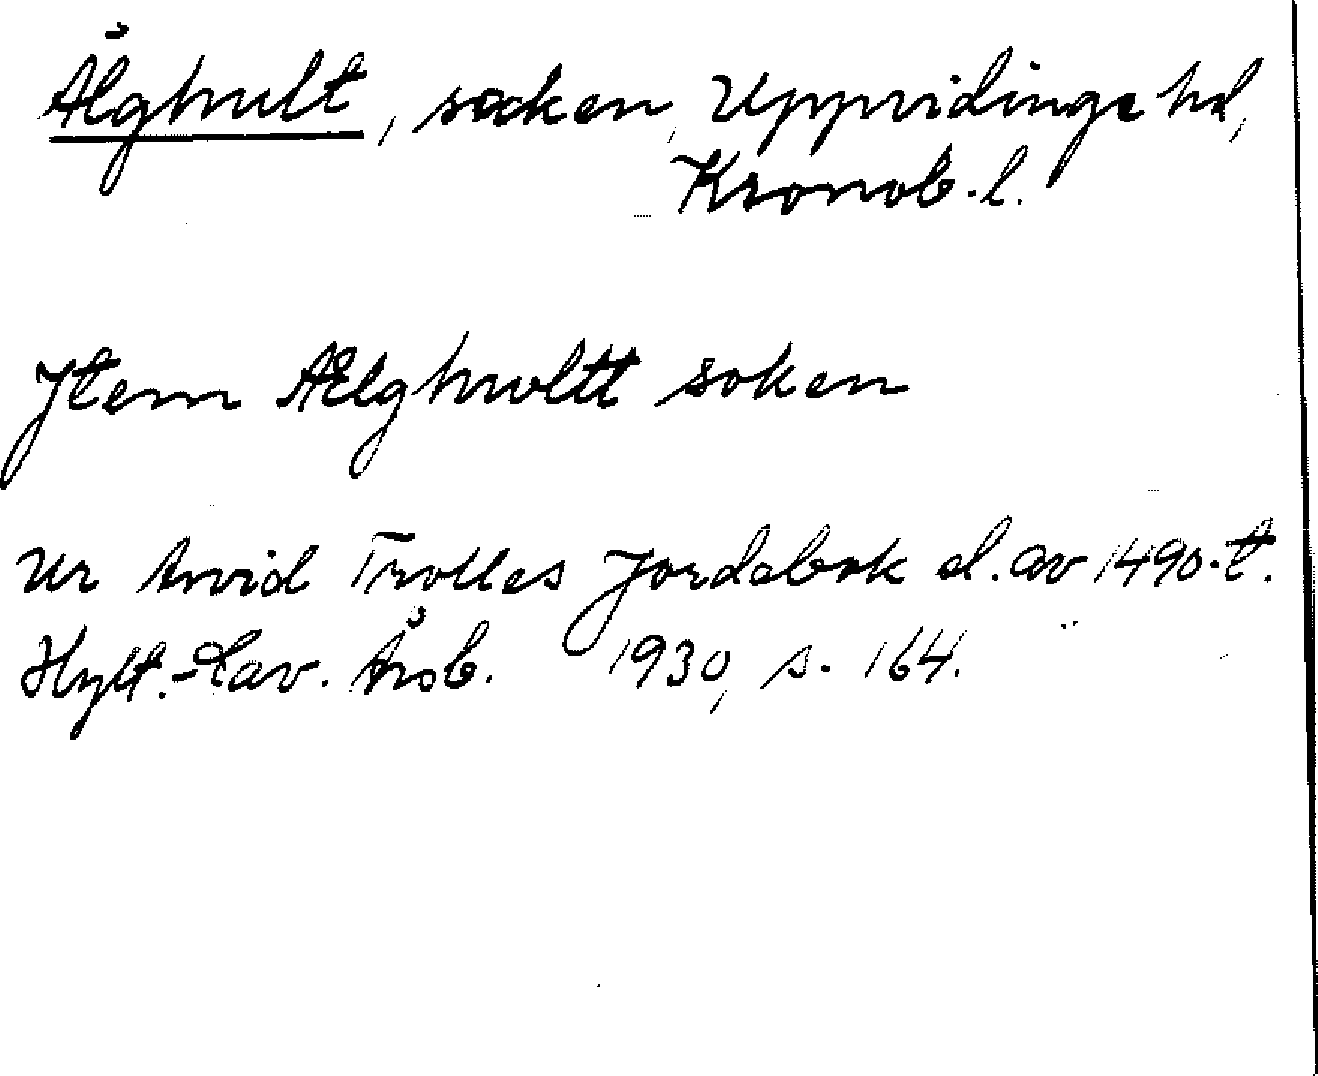 Älghult, socken, Uppvidinge hd,
Kronob. l.
Jtem Ælghwltt soken
Ur Arvid Trolles Jordebok sl. av 1490-t.
Hylt.-Cav. Årsb. 1930, s. 164.